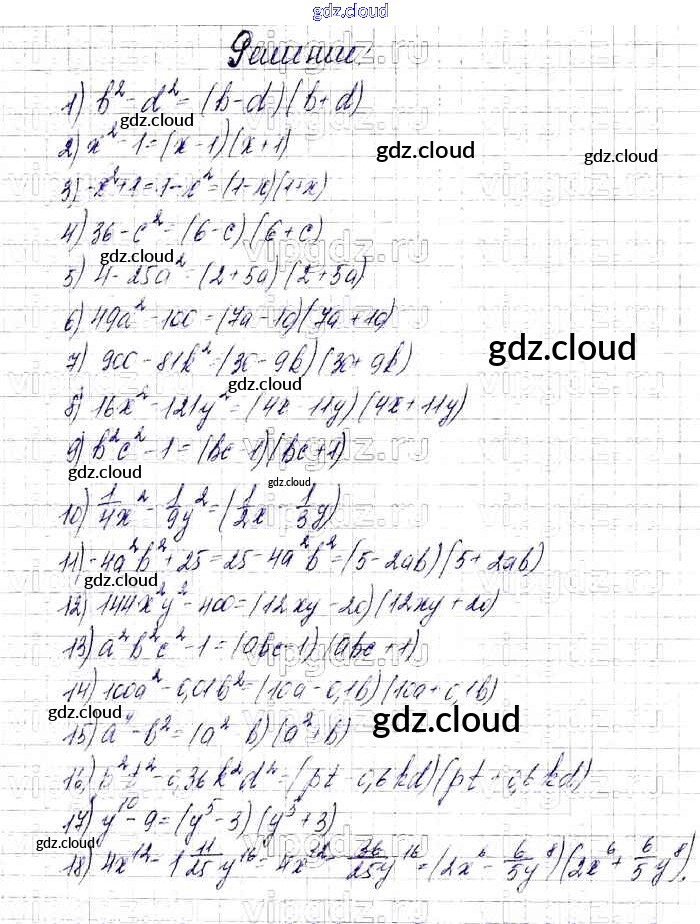 gdz.cloud
gdz.cloud
Решение:
1) b² - d² = (b-d)(b+d)
gdz.cloud
2) x² - 1 = (x-1)(x+1)
gdz.cloud
gdz.cloud
3) -x²+1=1-x² = (1-x)(1+x)
4) 36 - c² = (6-c)(6+c)
gdz.cloud
5) 4 - 25a² = (2+5a)(2+5a)
6) 49a² - 100 = (7a-10)(7a+10)
7) 900 - 81k² = (30-9k)(30+9k)
gdz.cloud
gdz.cloud
8) 16x² - 121y² = (4x-11y)(4x+11y)
9) b²c² - 1 = (bc-1)(bc+1)
gdz.cloud
gdz.cloud
10) 1/4x² - 1/9y² = (1/2x - 1/3y)
11) -4a²b² + 25 = 25 - 4a²b² = (5-2ab)(5+2ab)
gdz.cloud
12) 144x²y² - 400 = (12xy-20)(12xy+20)
13) a²b²c² - 1 = (abc-1)(abc+1)
14) 100a² - 0,01b² = (10a-0,1b)(10a+0,1b)
gdz.cloud
gdz.cloud
15) a⁴ - b² = (a² b)(a²+b)
16) p²t² - 0,36k²d² = (pt-0,6kd)(pt+0,6kd)
17) y¹⁰ - 9 = (y⁵-3)(y⁵+3)
gdz.cloud
gdz.cloud
18) 4x¹² - 1 11/25 y¹⁶ = 4x¹² - 36/25 y¹⁶ = (2x⁶ - 6/5 y⁸)(2x⁶ + 6/5 y⁸).